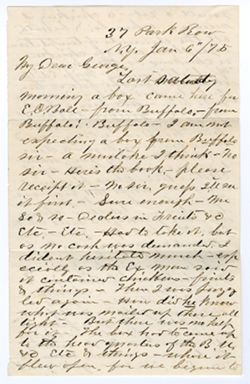 37 Park Row
N.Y. Jan 6th/75
My Dear George,
Last
morning a box came here for
C.C. Hall - from Buffalo - from
Buffalo! Buffalo - I am not
expecting a box from Buffalo
sir - a mistake I think - No
sir - Here's the book, please
receipt it - No sir, guess I'll see
it first - Sure enough - Mr
So & so - Dealers in Fruits &c
Etc - Etc - Had to take it, but
as no cash was demanded I
didn't hesitate much - esp-
ecially as the Ex man said
it contained - fruits
& things - Then I was
again - How did he know
what was nailed up there all
tight - But there was no help
The box had to come up
to the head quarters of the B. U.
& Etc & things - where it
flew open, for we began to